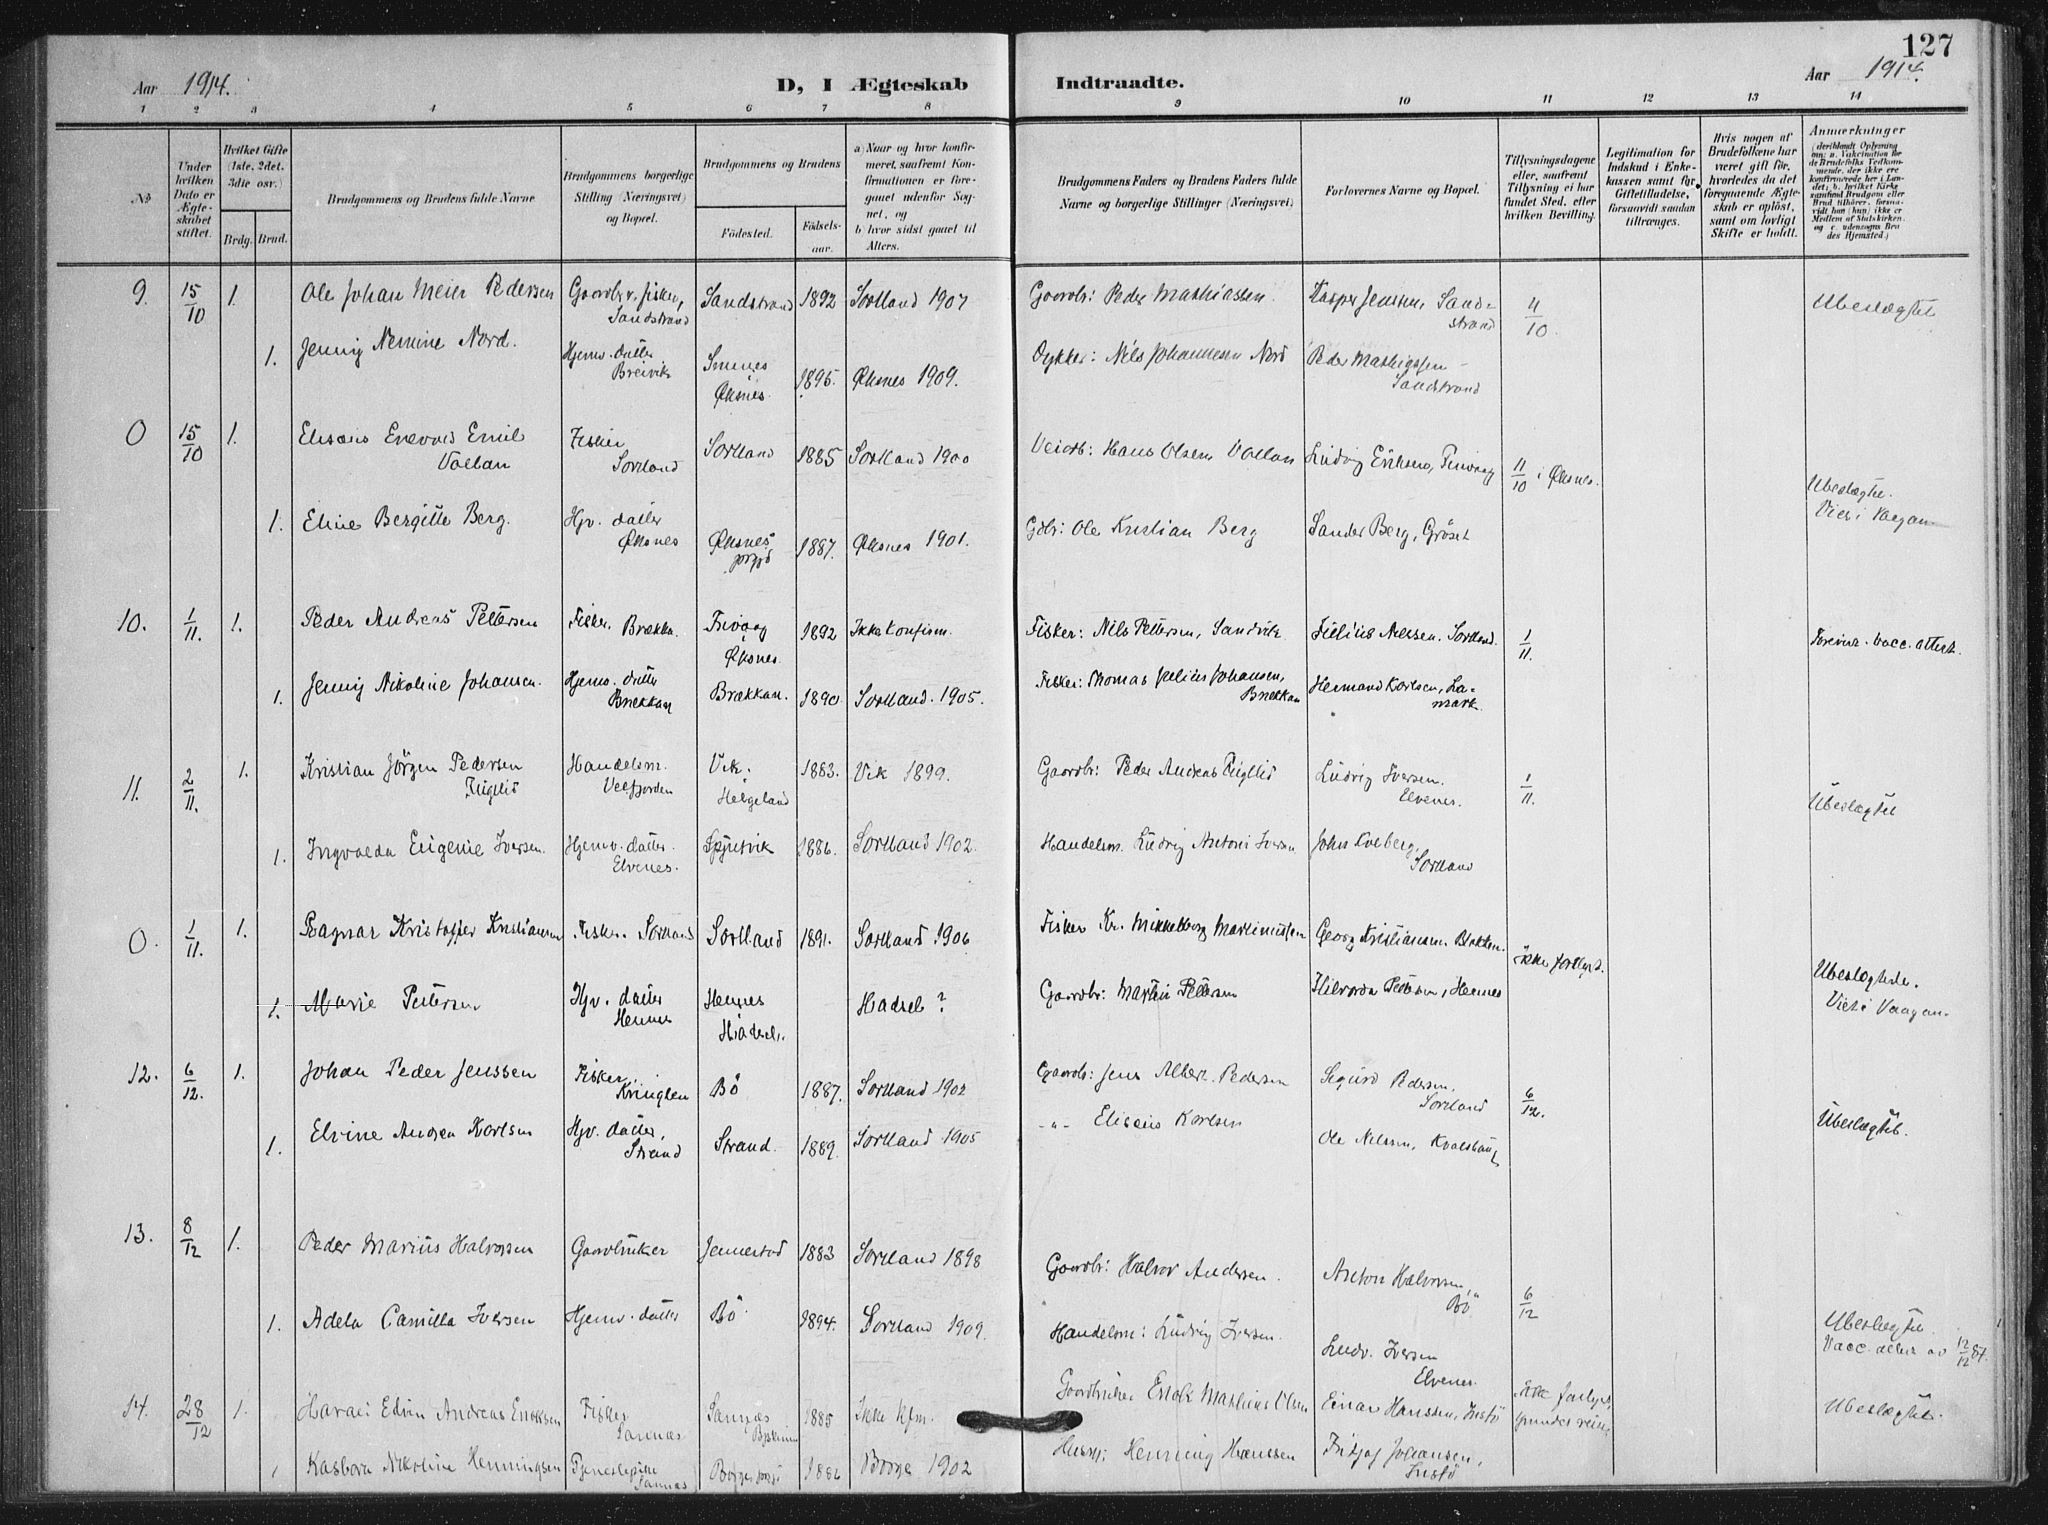 127
Aar 1914.
D, I Ægteskab
Indtraadte.
Aar 1914.
1 2 3 4 5 6 7 8 9 10 11 12 13 14
No.
Under hvilken Dato er Ægteskabet stiftet.
Hvilket Gifte (1ste, 2det, 3die osv.)
Brdg. Brud.
Brudgommens og Brudens fulde Navne
Brudgommens borgerlige Stilling (Næringsvei) og Bopæl.
Brudgommens og Brudens
Fødested.
Fødselsaar.
a) Naar og hvor konfirmeret, saafremt Konfirmationen er foregaaet udenfor Sognet, og
b) hvor sidst gaaet til Alters.
Brudgommens Faders og Brudens Faders fulde Navne og borgerlige Stillinger (Næringsvei)
Forlovernes Navne og Bopæl.
Tillysningsdagene eller, saafremt Tillysning ei har fundet Sted, efter hvilken Bevilling.
Legitimation for Indskud i Enkekassen samt for Giftetilladelse, forsaavidt saadan tiltrænges.
Hvis nogen af Brudefolkene har været gift før, hvorledes da det foregaaende Ægteskab er opløst, samt om lovligt Skifte er holdt.
Anmærkninger
9. 15/10 1. Ole Johan Meier Pedersen Gaardbr. v. fisker, Sandstrand Sandstrand 1892 Sortland 1907 Gaardb: Peder Mathiassen. Kasper Jenssen, Sandstrand 4/10 Ubeslægtet
1. Jenny Nemine Nord. Hjemv. datter Breivik Smines Øksnes. 1895. Øksnes 1909. Dykker: Nils Johannesen Nord Peder Mathiassen Sandstrand
0 15/10 1. Elisæus Enevold Emil Vollan Fisker Sortland Sortland 1885 Sortland 1900 Veiarb: Hans Olsen Vollan Ludvig Eriksen, Tinvaag 11/10 i Øksnes. Ubeslægtet. Viet i Vaagan
1. Eline Bergitte Berg. Hjv. datter Øksnes Øksnes prgjd 1887. Øksnes 1901. Gdbr: Ole Kristian Berg Sander Berg, Grøset
10. 1/11. 1. Peder Andreas Pettersen Fisker. Brækka. Tinvaag Øksnes. 1892 Ikke konfirm. Fisker: Nils Pettersen, Sandvik Julius Aressen. Sortland. 1/11. Forevist vacc. attest.
1. Jenny Nikoline Johansen. Hjemv. datter Brækkan Brækkan. 1890. Sortland. 1905. Fisker: Thomas Julius Johansen, Brækkan Hermand Karlsen, Lamark.
11. 2/11. 1. Kristian Jörgen Pedersen Fuglli Handelsm. Velfjorden Vik. Helgeland 1883. Vik 1899. Gaardbr: Peder Andreas Fugllid Ludvig Iversen. Elvenes. 1/11. Ubeslægtet
1. Ingvalda Eugenie Iversen. Hjemv. datter. Elvenes. Spjutvik 1886. Sortland 1902. Handelsm. Ludvig Antoni Iversen John Kolberg, Sortland
0. 1/11. 1. Ragnar Kristoffer Kristiansen Fisker. Sortland Sortland 1891. Sortland 1906 Fisker Kr. Mikkelborg Martinussen Georg Kristiansen. Blokken. Ikke forlyst. Ubeslægtede. Viet i Vaagan.
1. Marie Pettersen Hjv. datter Hennes Hennes Hadsel. Hadsel? Gaardbr: Martin Pettersen Halvorda Pettersen, Hennes
12. 6/12. 1. Johan Peder Jenssen Fisker, Kringlen Bö 1887. Sortland 1902 Gaardb: Jens Albert Pedersen Sigurd Pedersen, Sortland 6/12. Ubeslægtet.
1. Elvine Andrea Karlsen Hjv. datter, Strand Strand. 1889. Sortland 1905 -"- Elisæus Karlsen Ole Nilssen, Kvalshaug
13. 8/12 1. Peder Marius Halvorsen Gaardbruker Jennestad 1883 Sortland 1898 Gaardbr: Halvor Andersen. Anton Halvorsen, Bö 6/12
1. Adela Camilla Iversen Hjemv. datter Bö 1894. Sortland 1909. Handelsm: Ludvig Iversen. Ludv. Iversen Elvenes. Ubeslægtet. Vacc. attest av 12/12 87.
14. 28/12 1. Edvin Andreas Enoksen Fisker Sannæs Sannæs 1885 Ikke kfm. Gaardbruker Enok Mathius Olsen Einar Hanssen, Instö Ikke forlyst grundet reise Ubeslægtet.
1 Kasbora Nikoline Henningsen Tjenestepike Sannæs 1886 Borge 1902 Husm: Henning Hanssen Fritjof Johansen, Instö